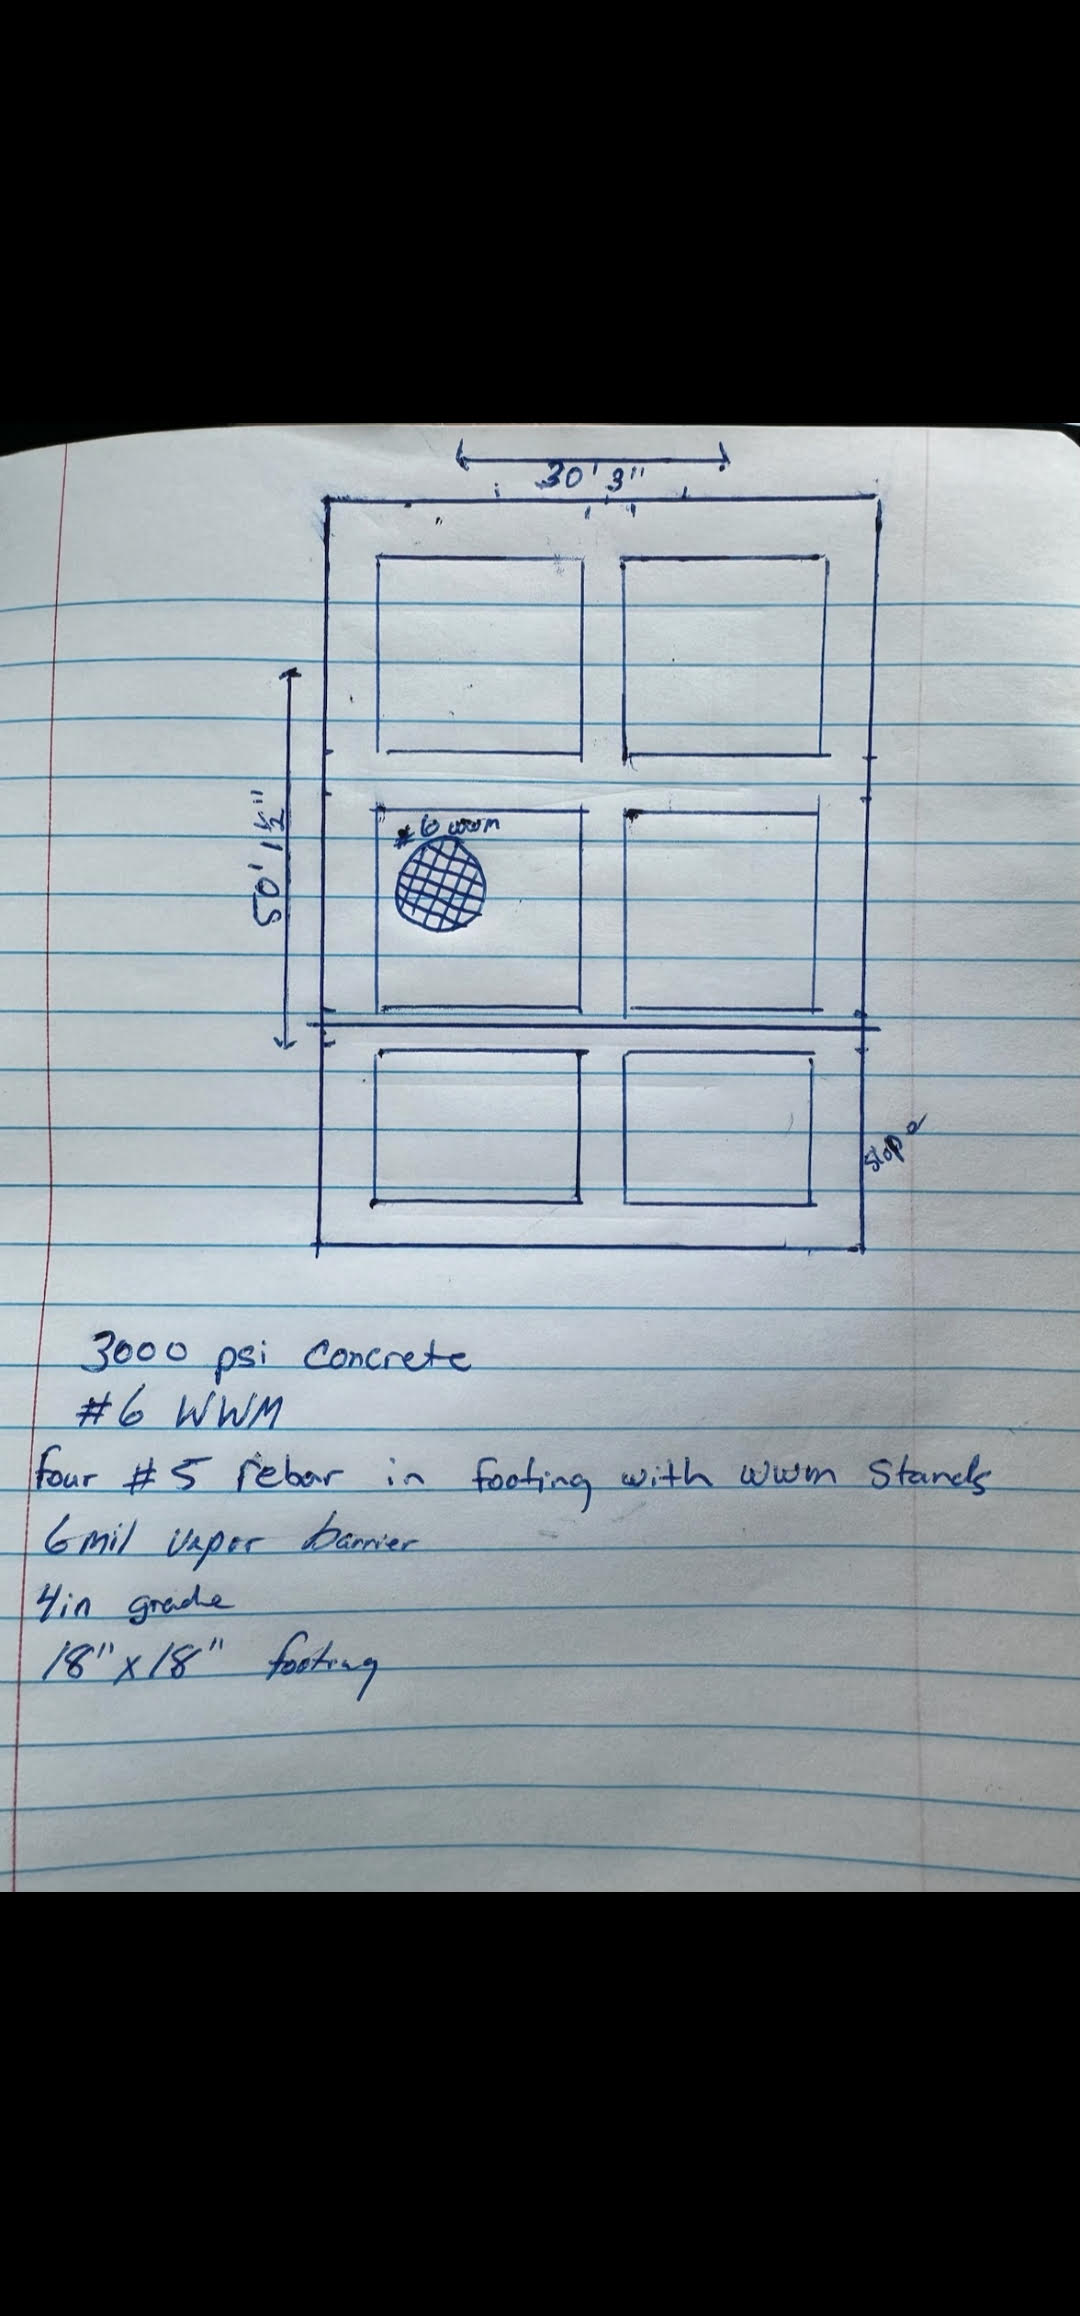 30' 3"
50' 1½"
#6 WWM
slope
3000 psi Concrete
#6 WWM
four #5 rebar in footing with wwm Stands
6mil vapor barrier
4in grade
18"x18" footing